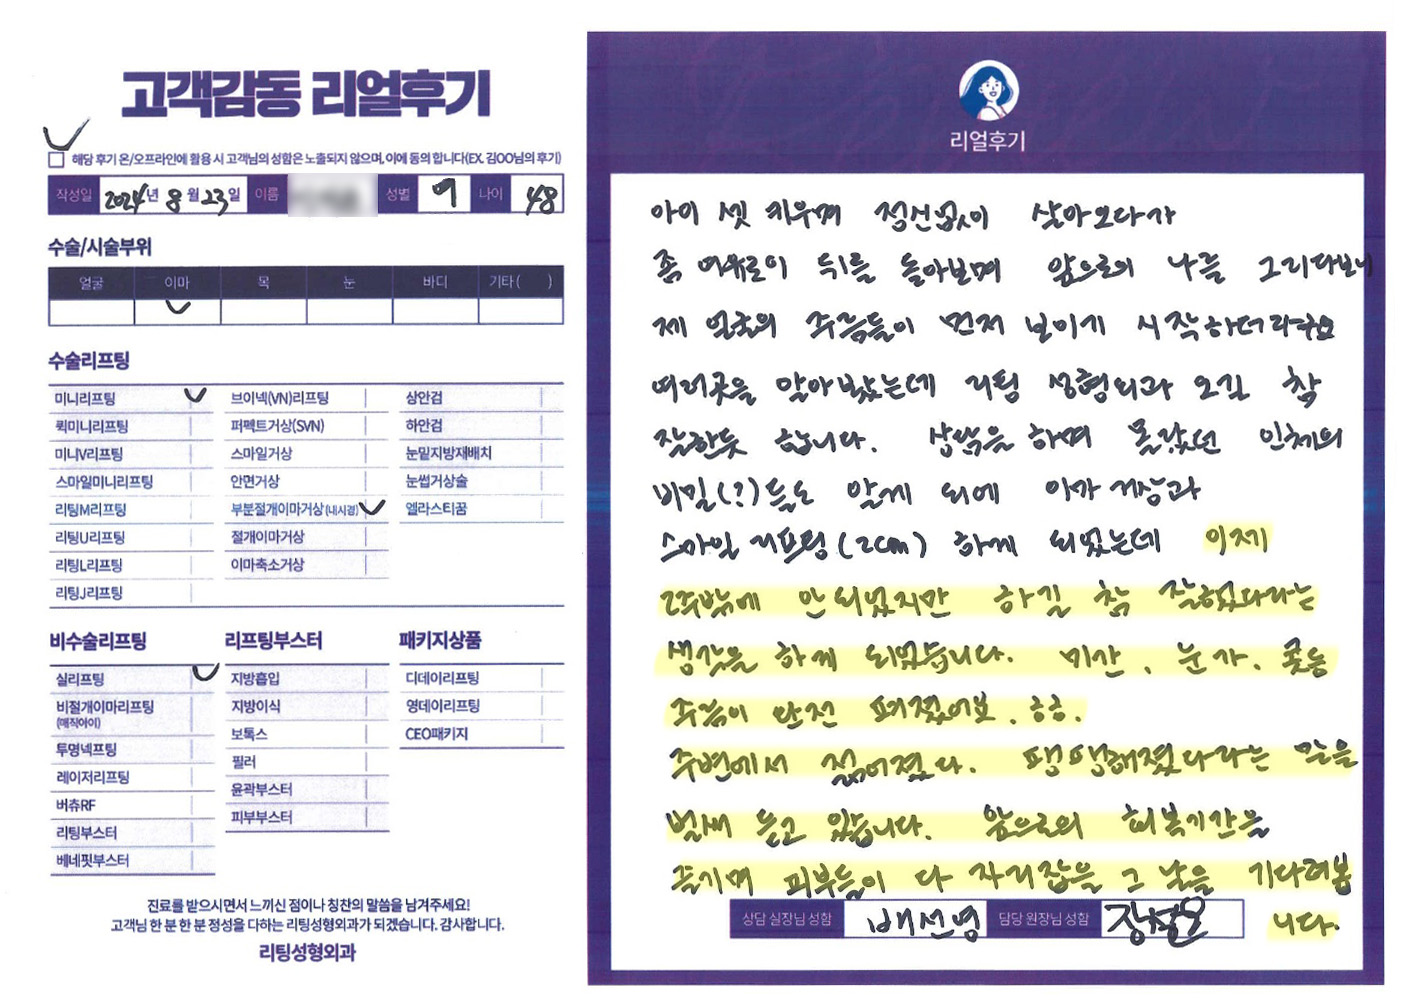 고객감동 리얼후기
해당 후기 온/오프라인에 활용 시 고객님의 성함은 노출되지 않으며, 이에 동의 합니다(EX. 김OO님의 후기)
작성일 2024년 8월 23일 이름 성별 여 나이 48
수술/시술부위
얼굴 이마 목 눈 바디 기타( )
수술리프팅
미니리프팅 브이넥(VN)리프팅 상안검
퀵미니리프팅 퍼펙트거상(SVN) 하안검
미니V리프팅 스마일거상 눈밑지방재배치
스마일미니리프팅 안면거상 눈썹거상술
리팅M리프팅 부분절개이마거상(내시경) 엘라스티꿈
리팅U리프팅 절개이마거상
리팅L리프팅 이마축소거상
리팅J리프팅
비수술리프팅 리프팅부스터 패키지상품
실리프팅 지방흡입 디데이리프팅
비절개이마리프팅 지방이식 영데이리프팅
(매직아이) 보톡스 CEO패키지
투명넥프팅 필러
레이저리프팅 윤곽부스터
버츄RF 피부부스터
리팅부스터
베네핏부스터
진료를 받으시면서 느끼신 점이나 칭찬의 말씀을 남겨주세요!
고객님 한 분 한 분 정성을 다하는 리팅성형외과가 되겠습니다. 감사합니다.
리팅성형외과
리얼후기
아이 셋 키우며 정신없이 살아오다가
좀 여유로이 뒤를 돌아보며 앞으로의 나를 그리다보니
제 얼굴의 주름들이 먼저 보이기 시작하더라구요
여러곳을 알아봤는데 리팅 성형외과 오길 참
잘한듯 합니다. 상담을 하며 몰랐던 인체의
비밀(?)들도 알게 되어 이마 거상과
스마일 리프팅(2cm) 하게 되었는데 이제
2주밖에 안되었지만 하길 참 잘했다라는
생각을 하게 되었습니다. 미간, 눈가, 콧등
주름이 완전 펴졌어요. ㅎㅎ.
주변에서 젊어졌다. 탱탱해졌다라는 말을
벌써 듣고 있습니다. 앞으로의 회복기간을
즐기며 피부들이 다 자리잡을 그 날을 기다려봅
니다.
상담 실장님 성함 배선영 담당 원장님 성함